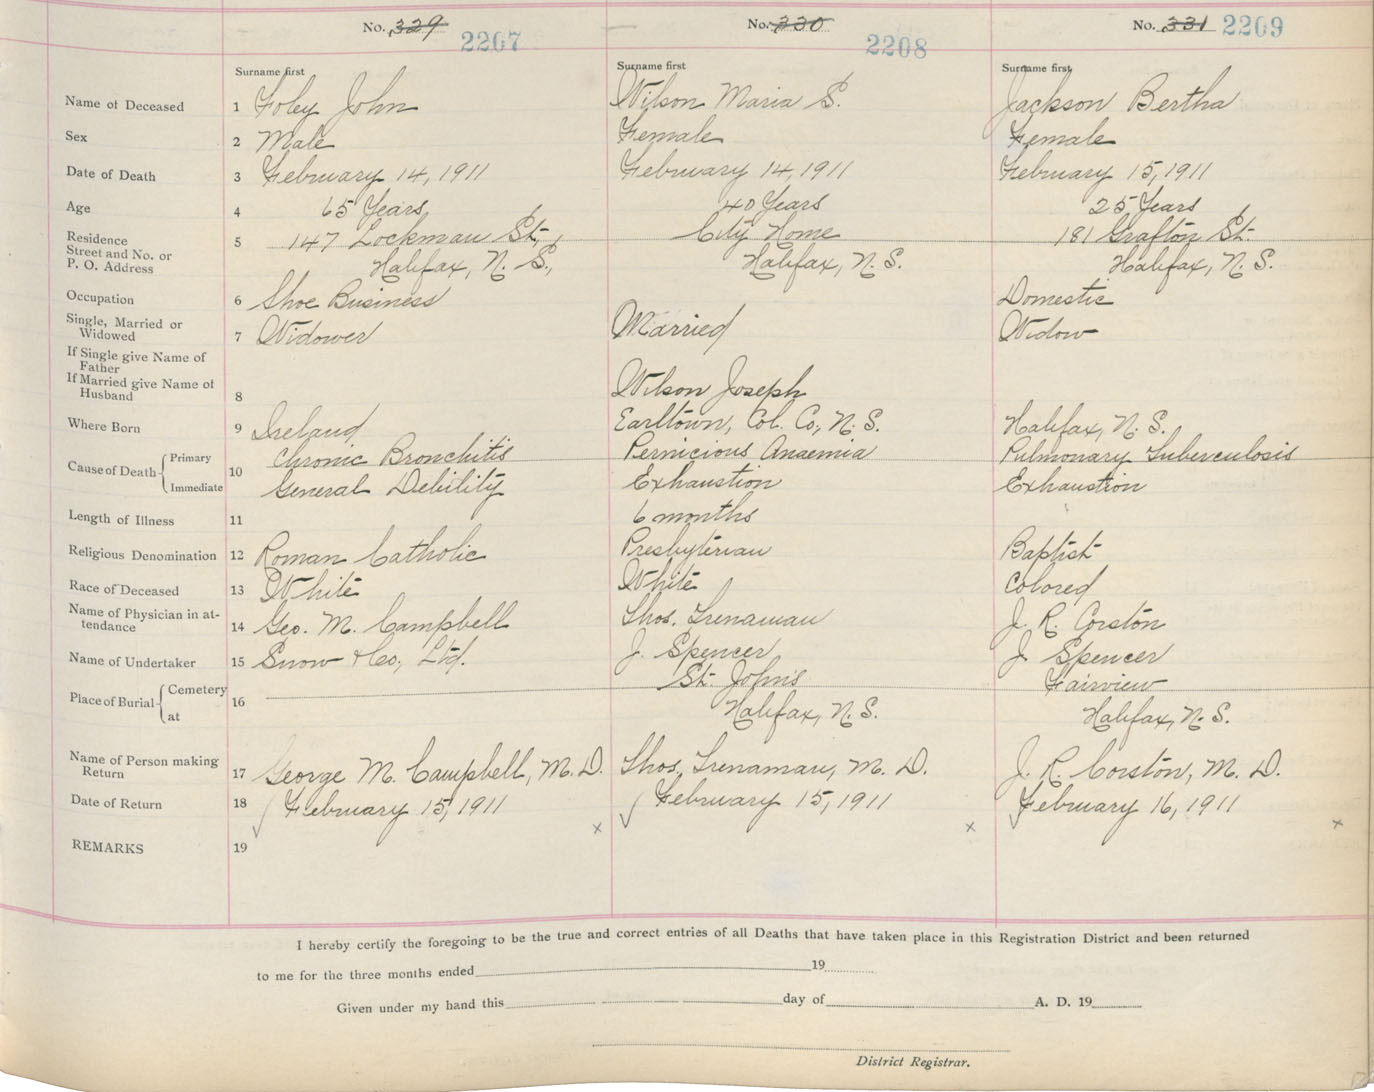 No. 329 2207 No. 330 2208 No. 331 2209
Surname first Surname first Surname first
Name of Deceased 1 Foley John Wilson Maria S. Jackson Bertha
Sex 2 Male Female Female
Date of Death 3 February 14, 1911 February 14, 1911 February 15, 1911
Age 4 65 Years 40 Years 25 Years
Residence
Street and No. or 5 147 Lockman St., City Home 181 Grafton St.
P. O. Address Halifax, N. S., Halifax, N. S. Halifax, N. S.
Occupation 6 Shoe Business Domestic
Single, Married or
Widowed 7 Widower Married Widow
If Single give Name of
Father
If Married give Name of
Husband 8 Wilson Joseph
Where Born 9 Ireland Earltown, Col. Co, N. S. Halifax, N. S.
Cause of Death Primary 10 Chronic Bronchitis Pernicious Anaemia Pulmonary Tuberculosis
Immediate General Debility Exhaustion Exhaustion
Length of Illness 11 6 months
Religious Denomination 12 Roman Catholic Presbyterian Baptist
Race of Deceased 13 White White Colored
Name of Physician in at-
tendance 14 Geo. M. Campbell Thos. Trenaman J. R. Corston
Name of Undertaker 15 Snow & Co, Ltd. J. Spencer J Spencer
Place of Burial Cemetery 16 St. John's Fairview
at Halifax, N. S. Halifax, N. S.
Name of Person making
Return 17 George M. Campbell, M. D. Thos. Trenaman, M. D. J. R. Corston, M. D.
Date of Return 18 February 15, 1911 February 15, 1911 February 16, 1911
REMARKS 19
I hereby certify the foregoing to be the true and correct entries of all Deaths that have taken place in this Registration District and been returned
to me for the three months ended 19
Given under my hand this day of A. D. 19
District Registrar.